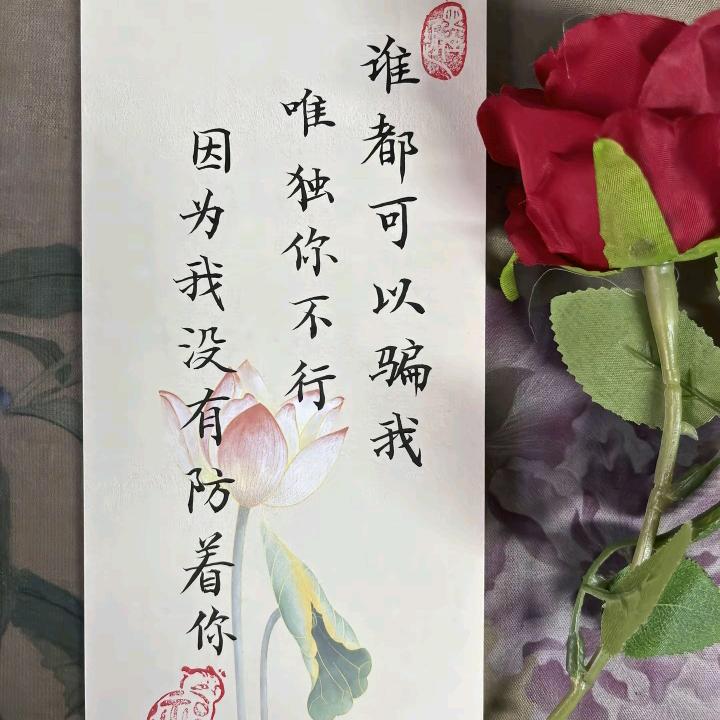 谁都可以骗我
唯独你不行
因为我没有防着你